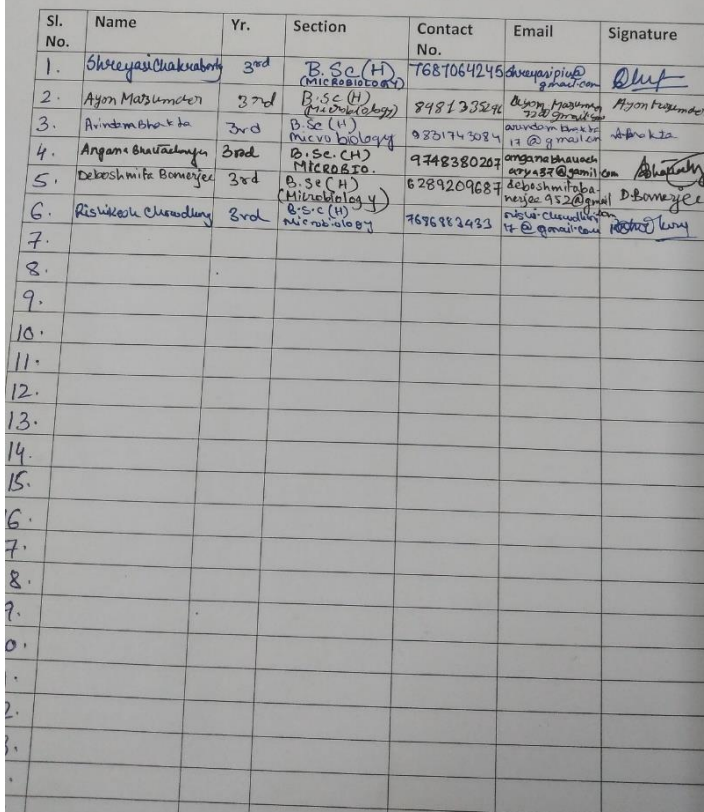 Sl. No. Name Yr. Section Contact No. Email Signature
1. Shreyasi Chakraborty 3rd B.Sc (H) (MICROBIOLOGY) 7687064245 shreyasipiu@gmail.com
2. Ayon Mazumder 3rd B.Sc (H) (Microbiology) Ayon Mazumder
3. Arindam Bhakta 3rd B.Sc (H) microbiology 9831743084 arindambhakta17@gmail.com ABhakta
4. Angana Bhattacharyya 3rd B.Sc. (H) MICROBIO. 9748380207 anganabhattacharya37@gamil.com
5. Deboshmita Banerjee 3rd B.Sc (H) (Microbiology) 6289209687 deboshmitabanerjee952@gmail D.Banerjee
6. Rishikesh Chowdhury 3rd B.S.c (H) Microbiology 7686883433
7.
8.
9.
10.
11.
12.
13.
14.
15.
6.
7.
8.
9.
0.
.
2.
3.
.